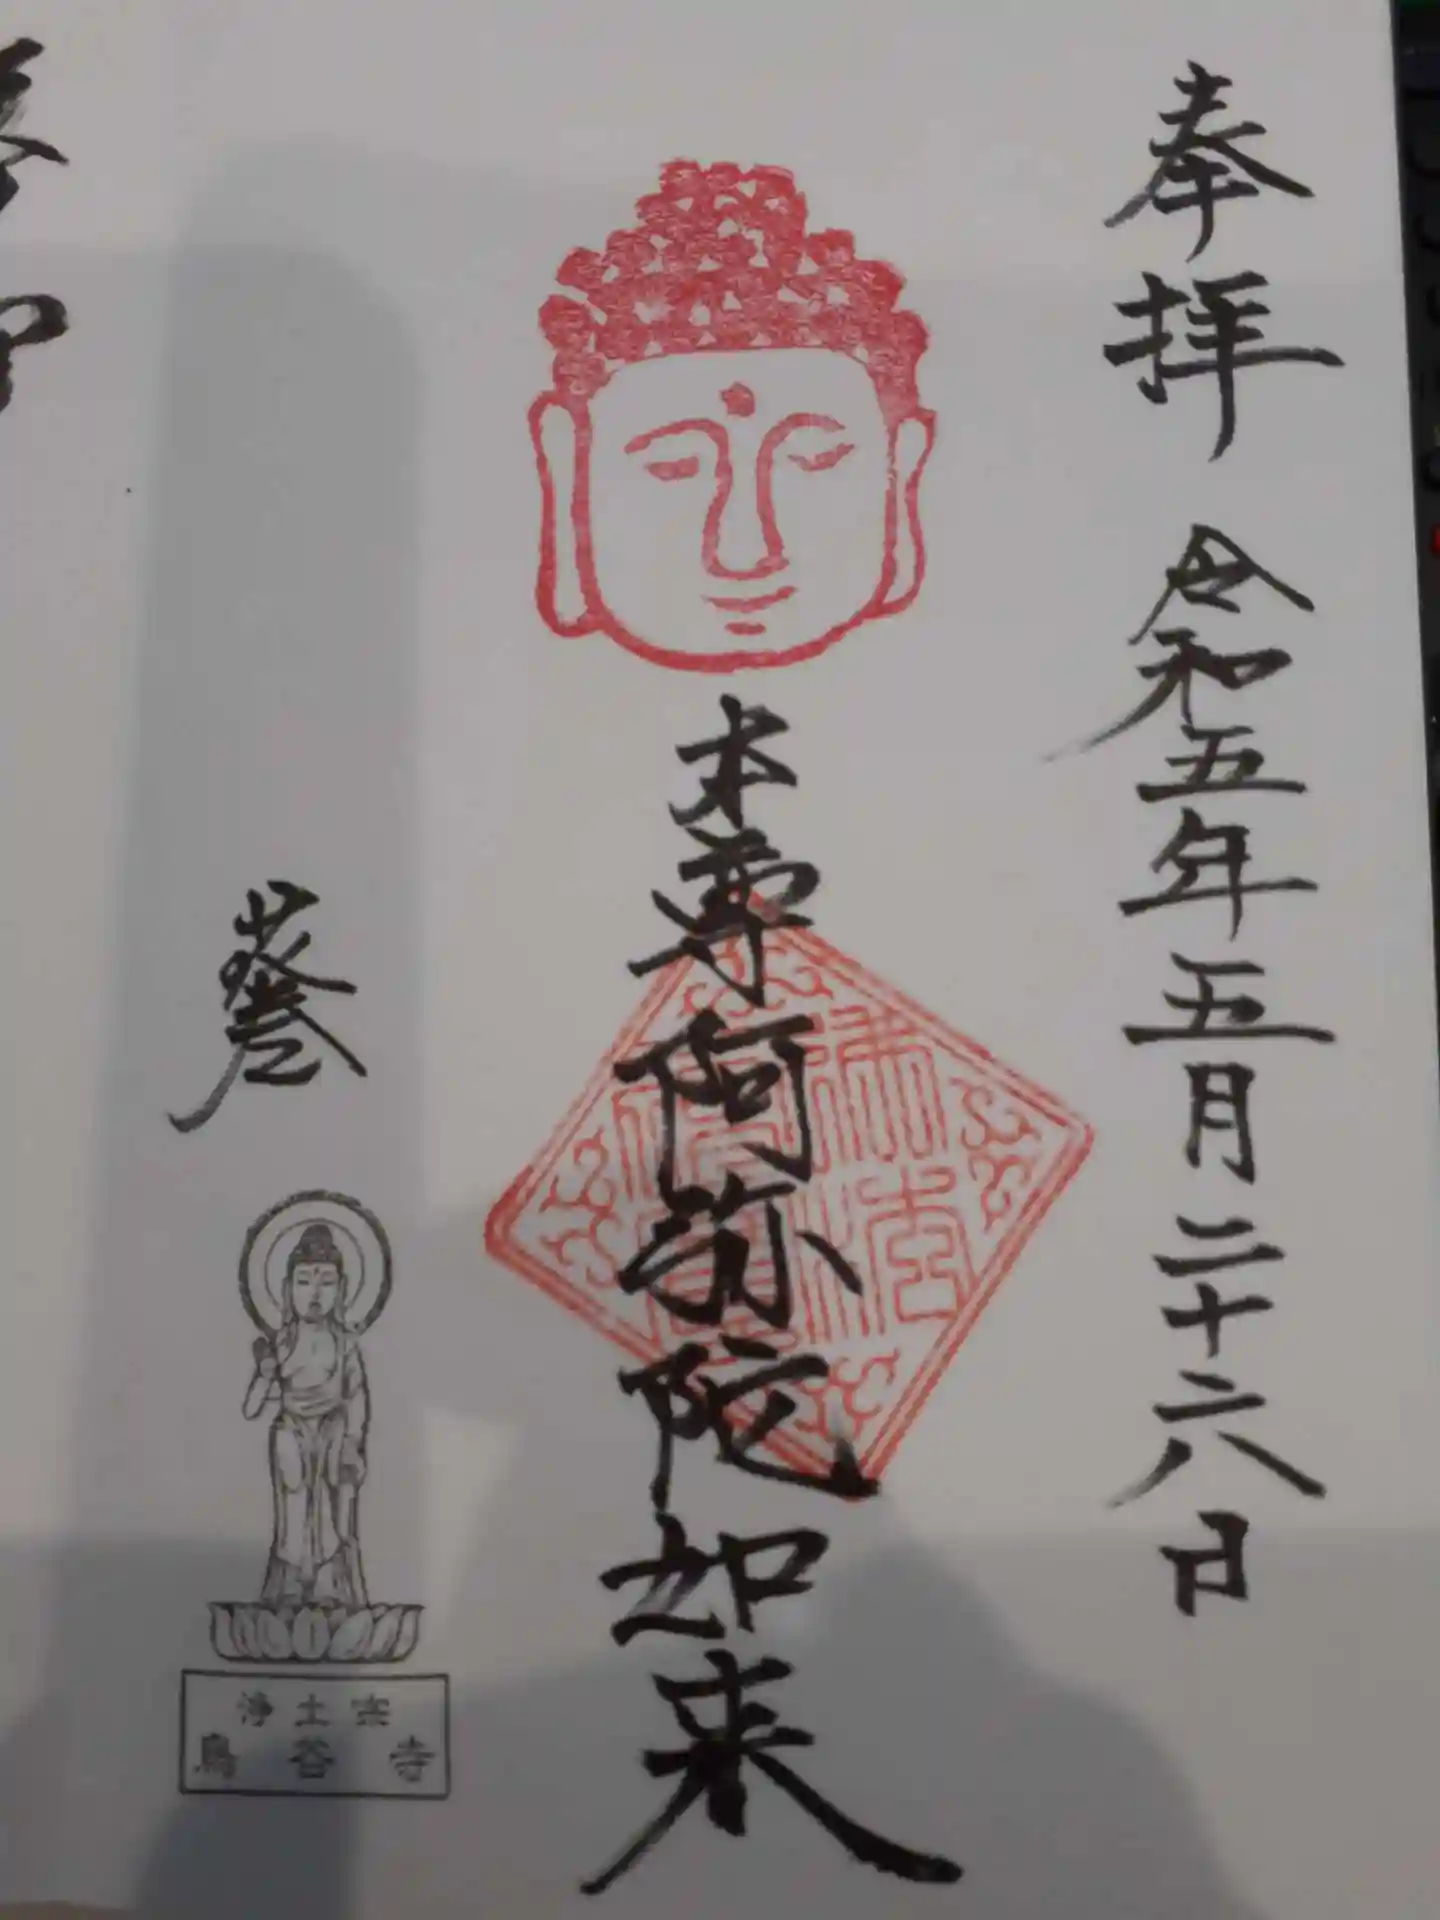 奉拝 令和五年五月二十六日
本尊阿弥陀如来
浄土宗
鳥谷寺